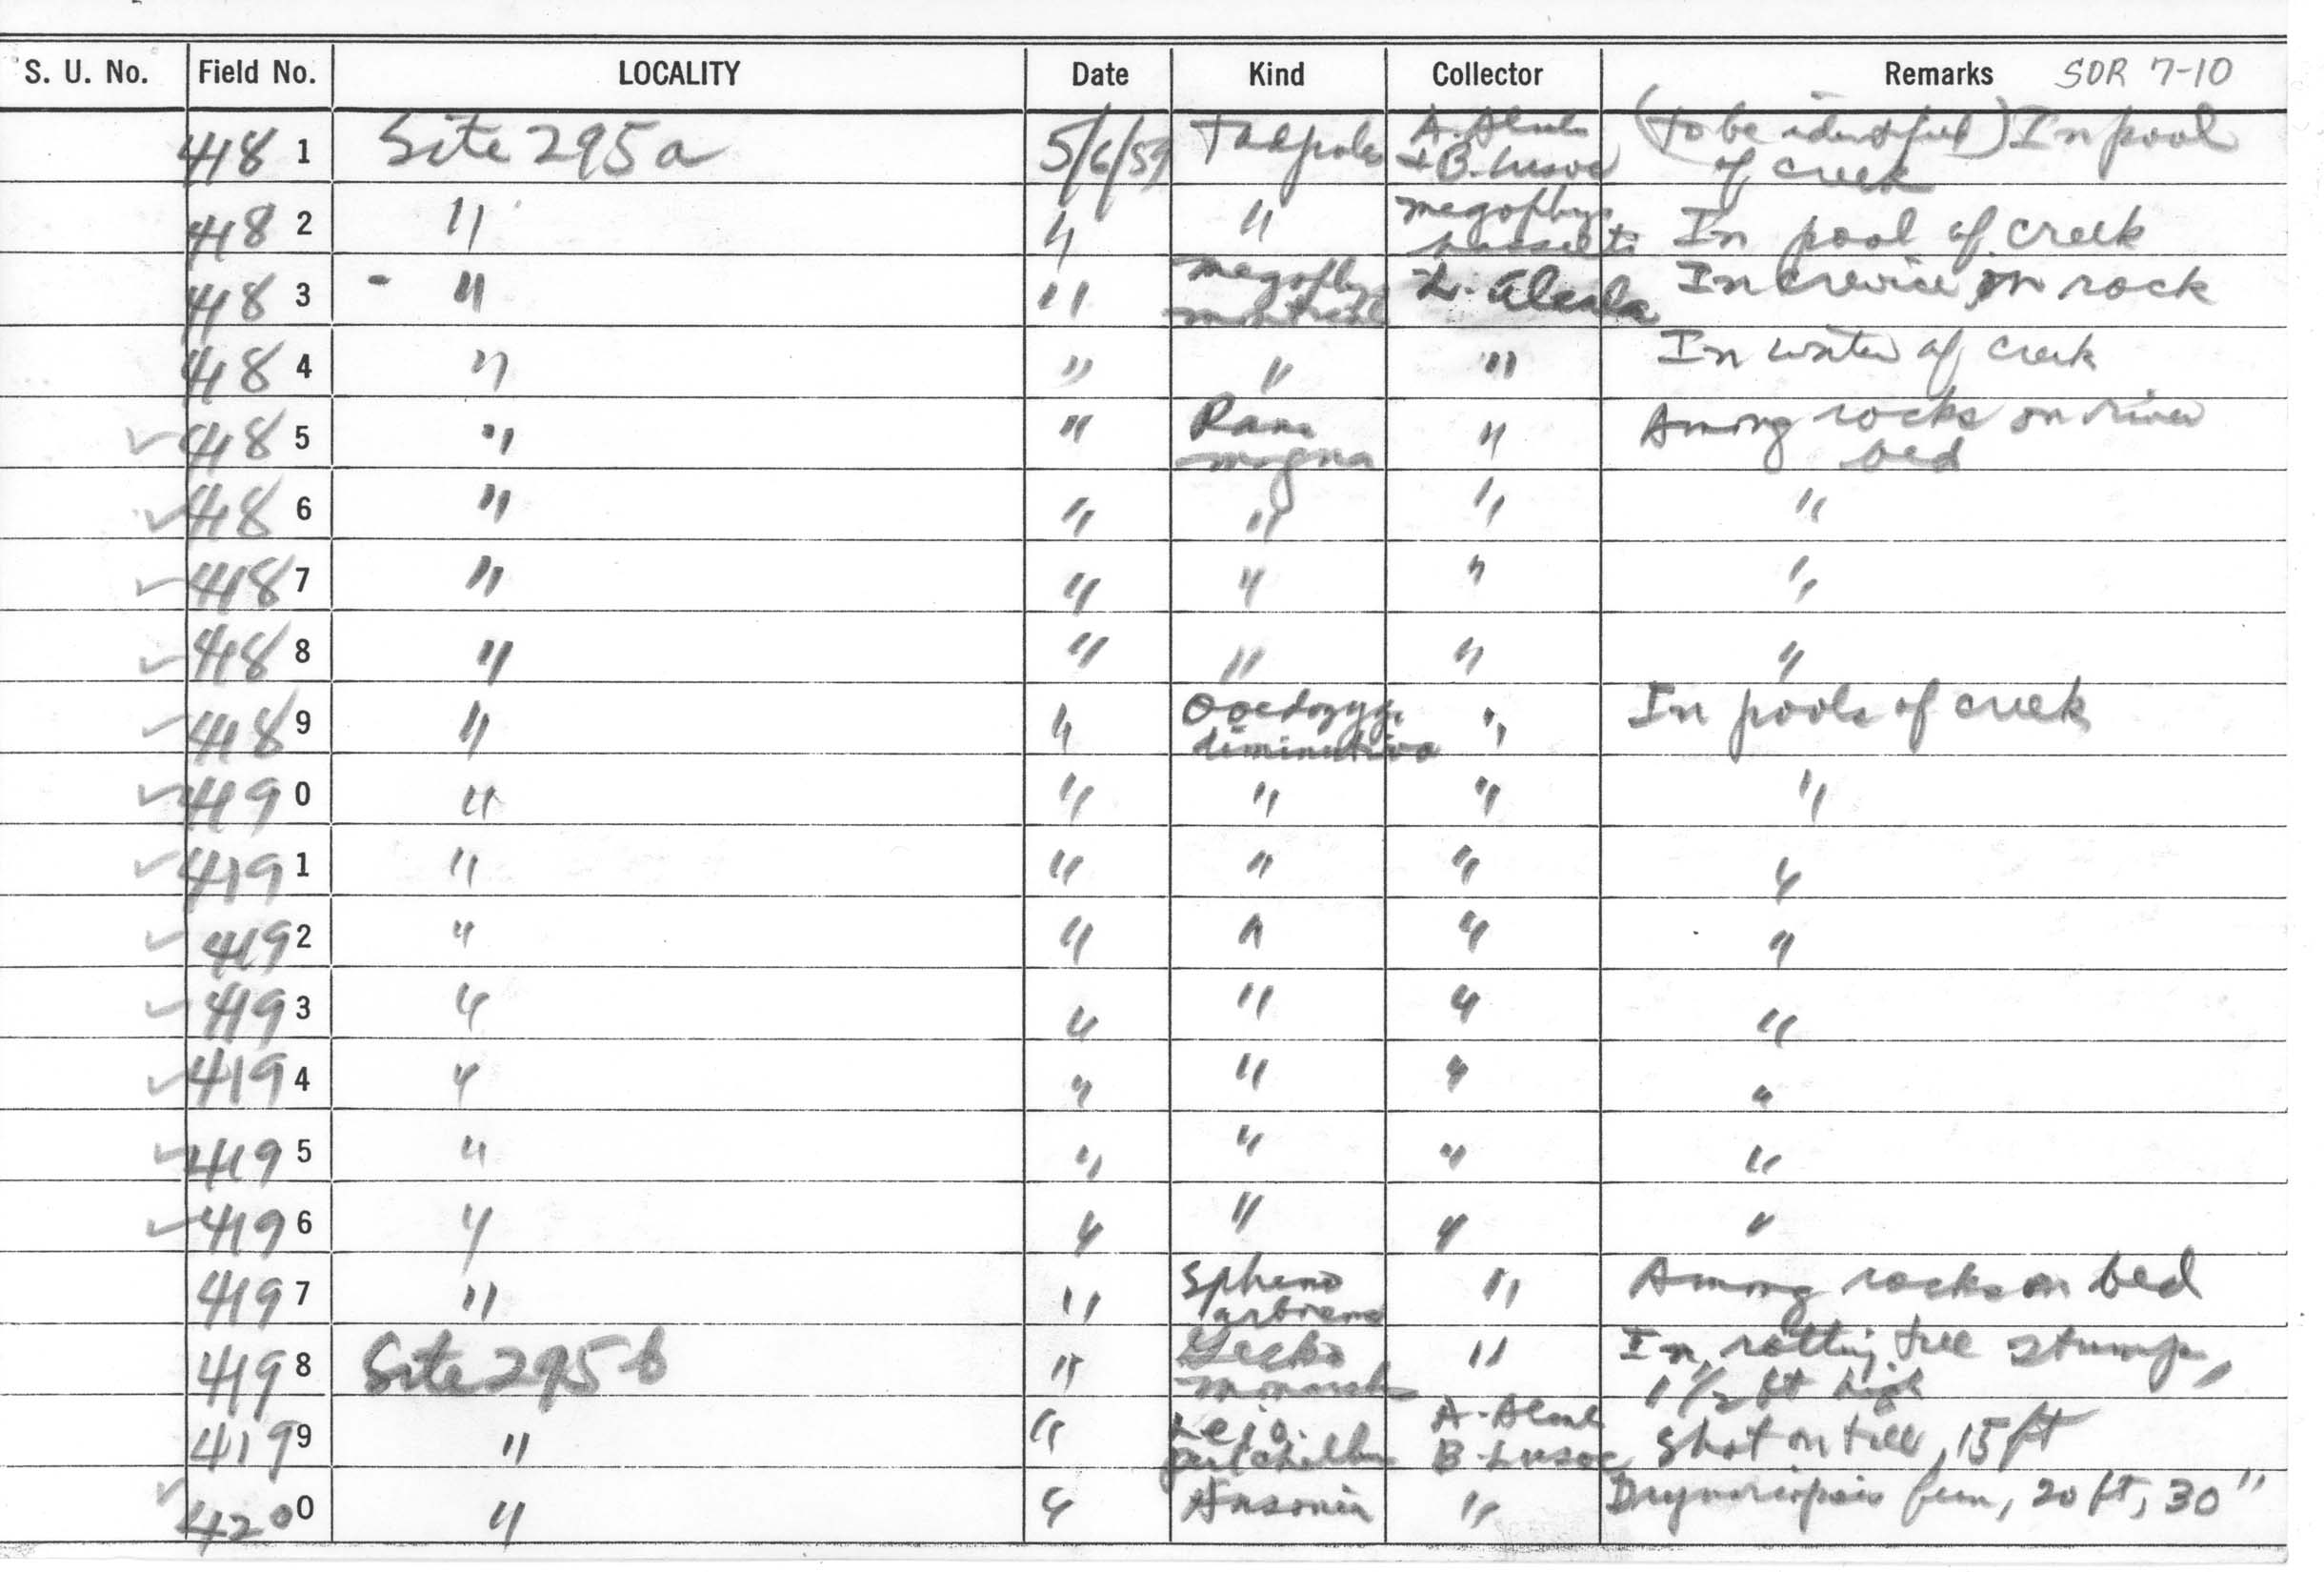 S. U. No. Field No. LOCALITY Date Kind Collector Remarks SOR 7-10
418 1 Site 295a 5/6/59 Tadpole A. Alcala + B. Lusoc (to be identified) In pool of creek
418 2 " " " Megophrys hasselti In pool of creek
418 3 - " " Megophrys L. Alcala In crevice on rock
418 4 " " " " In water of creek
418 5 " " Rana magna " Among rocks on river bed
418 6 " " " " "
418 7 " " " " "
418 8 " " " " "
418 9 " " Ooedozyga diminutiva " In pools of creek
419 0 " " " " "
419 1 " " " " "
419 2 " " " " "
419 3 " " " " "
419 4 " " " " "
419 5 " " " " "
419 6 " " " " "
419 7 " " Spheno " Among rocks on bed
419 8 Site 295b " Gecko monarchus " In rotting tree stump, 1 1/2 ft high
419 9 " " Leio. A. Alcala B. Lusoc Shot on tree, 15 ft
420 0 " " Ansonia " fern, 20 ft, 30"